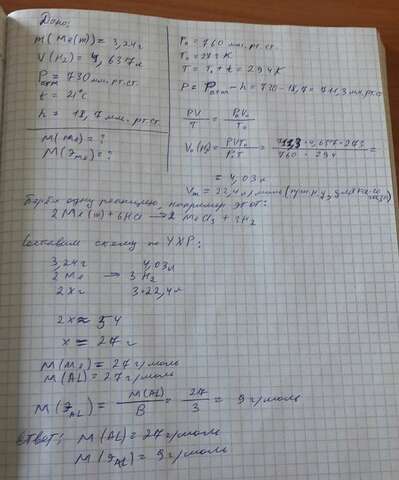 Дано:
m(Me(III)) = 3,24г
V(H₂) = 4,637л
Pатм = 730 мм.рт.ст.
t = 21°C
h = 18,7 мм.рт.ст.
M(Me) = ?
M(Эме) = ?
P₀ = 760 мм.рт.ст.
T₀ = 273 K
T = T₀ + t = 294K
P = Pатм - h = 730 - 18,7 = 711,3 мм.рт.ст
PV/T = P₀V₀/T₀
V₀(H₂) = PVT₀/P₀T = 711,3 · 4,637 · 273/760 · 294 =
= 4,03л
Vm = 22,4 л/моль (при н.у. для
Берём одну реакцию, например этот:
2Me(III) + 6HCl → 2MeCl3 + 3H2
Составим схему по УХР:
3,24г 4,03л
2Me → 3H2
2Xг 3·22,4л
2x ≈ 54
x = 27г
M(Me) = 27г/моль
M(AL) = 27г/моль
M(ЭAL) = M(AL)/B = 27/3 = 9г/моль
Ответ: M(AL) = 27г/моль
M(ЭAL) = 9г/моль